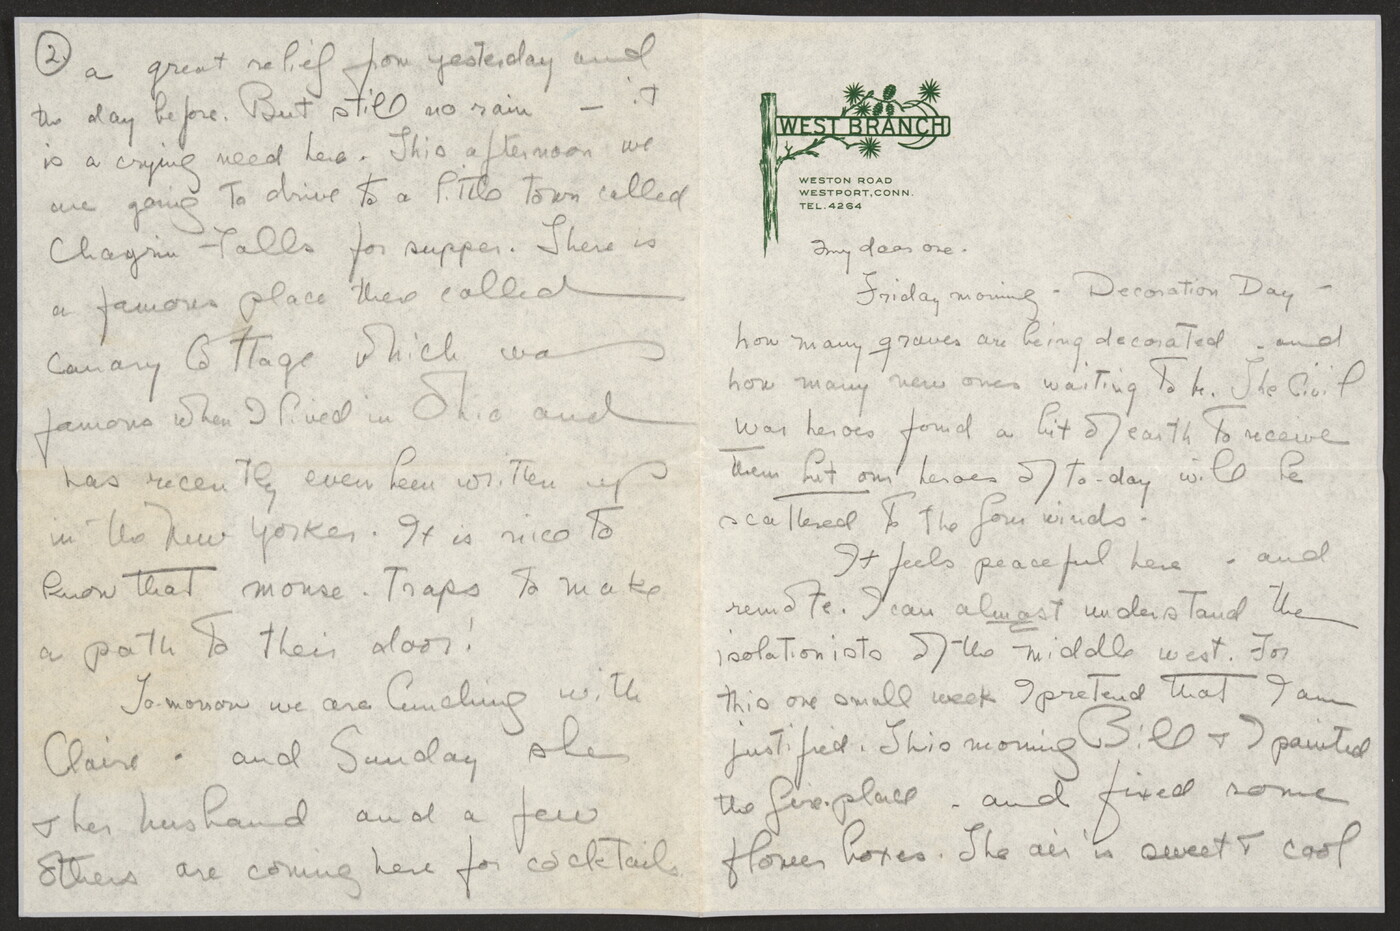 WEST BRANCH
WESTON ROAD
WESTPORT, CONN.
TEL. 4264
My dear one.
Friday morning - Decoration Day -
how many graves are being decorated - and
how many new ones waiting to be. The Civil
War heroes found a bit of earth to receive
them but our heroes of to-day will be
scattered to the four winds.
It feels peaceful here - and
remote. I can almost understand the
isolationists of the middle west. For
this one small week I pretend that I am
justified. This morning Bill & I painted
the fireplace - and fixed some
flower boxes. The air is sweet & cool
2.
a great relief from yesterday and
the day before. But still no rain - it
is a crying need here. This afternoon we
are going to drive to a little town called
Chagrin Falls for supper. There is
a famous place there called
Canary Cottage which was
famous when I lived in Ohio and
has recently even been written up
in the New Yorker. It is nice to
know that mouse. Traps to make
a path to their door!
Tomorrow we are lunching with
Claire - and Sunday she
& her husband and a few
others are coming here for cocktails